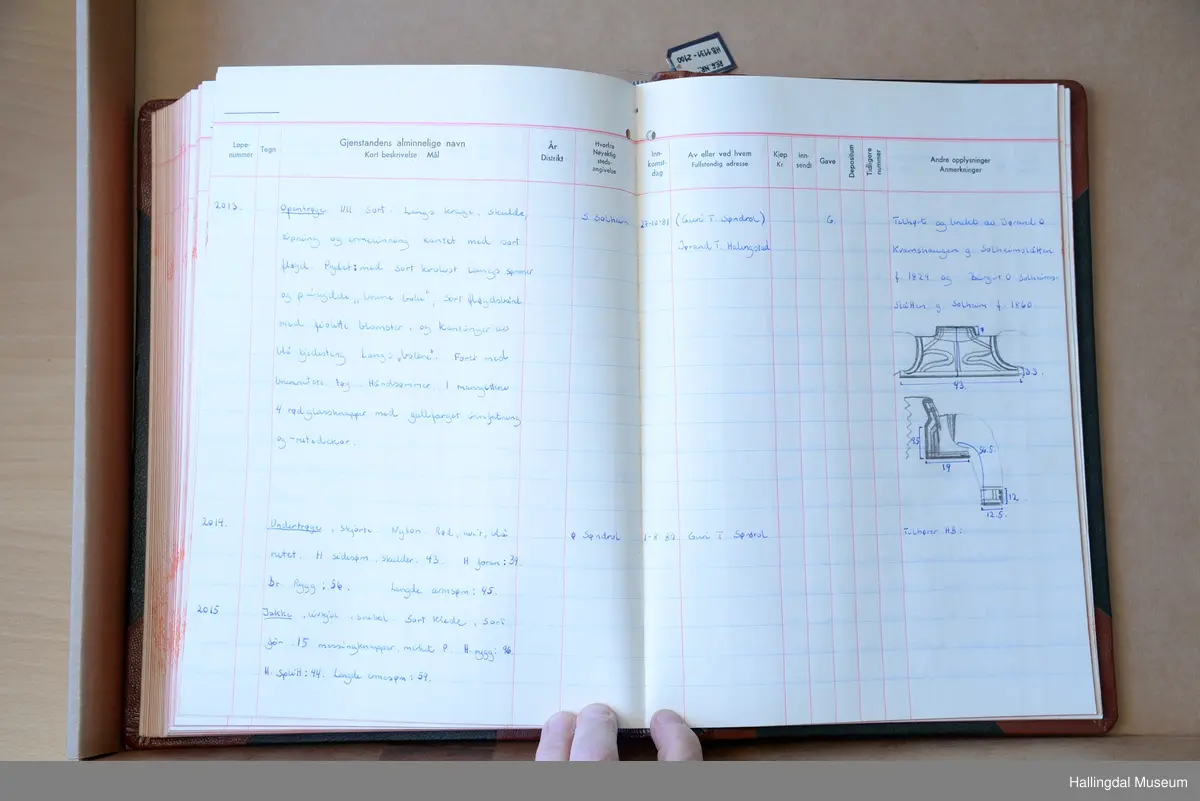 REG. NR.
HB 1131-2100
Løpe-
nummer
Tegn
Gjenstandens alminnelige navn
Kort beskrivelse Mål
År
Distrikt
Hvorfra
Nøyaktig
steds-
angivelse
Inn-
komst-
dag
Av eller ved hvem
Fullstendig adresse
Kjøp
Kr.
Inn-
sendt
Gave
Depositum
Tidligere
nummer
Andre opplysninger
Anmerkninger
2013.
Opentrøye Ull Sort. Langs krage, skulder,
åpning og ermelinning kantet med sort
fløyel. Rydet: med sort krolust langs sømmer
og påsydde "bolar", sort fløyelsbånd
med fiolette blomster, og kantinger av
blå kjedesting langs "bolane". Foret med
tøy. Håndsømmer. I mansjettene
4 rød glassknapper med gullfarget innfatning
og -rutedekor.
S. Solheim
27-10-81
(Guri T. Søndrol)
Jørand T. Halingstad
G.
Tilhørt og brukt av Jørand O
Kramshaugen g. Solheimslåtten
f. 1824 og Birgit O Solheims-
slåtten g. Solheim f. 1860
9
3.3.
43.
9.5
19
56.5.
12
12.5.
2014.
Undertrøye, skjorte Nylon. Rød, hvit, blå
rutet. H sidesøm, skulder. 43. H foran: 39.
br. Rygg: 56. Lengde armsøm: 45.
Søndrol
1-8 82.
Guri T. Søndrol
Tilhører HB:
2015
Jakke, livkjol, snibel. Sort klede, sort
fôr. 15 messingknapper, merket P. H. rygg: 96.
H. Splitt: 44. Lengde armsøm: 59.
Hallingdal Museum